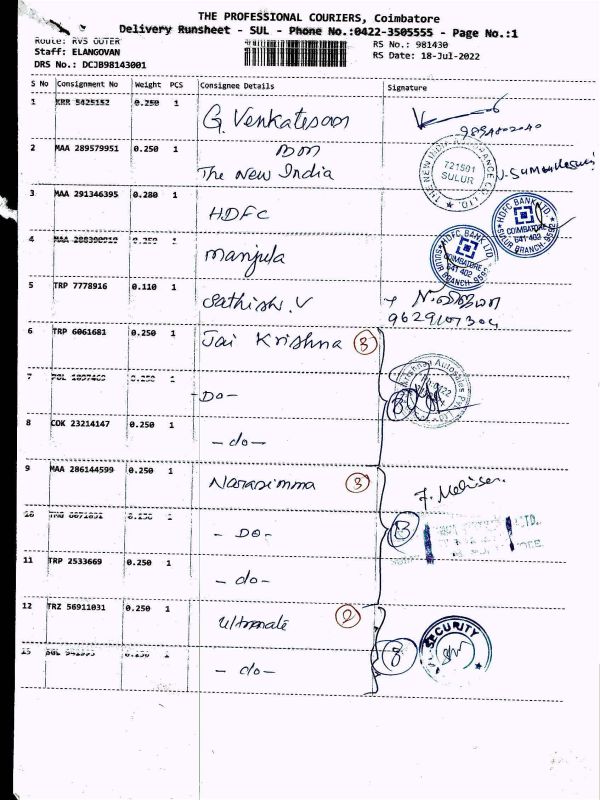 THE PROFESSIONAL COURIERS, Coimbatore
Delivery Runsheet - SUL - Phone No.:0422-3505555 - Page No.:1
Route: RVS OUTER
RS No.: 981430
Staff: ELANGOVAN
RS Date: 18-Jul-2022
DRS No.: DCJB98143001
S No Consignment No Weight PCS Consignee Details Signature
1 KRR 5425152 0.250 1 G. Venkatesan
2 MAA 289579951 0.250 1 BM
The New India
THE NEW INDIA ASSURANCE CO. LTD.
721501
SULUR
3 MAA 291346395 0.280 1 HDFC
HDFC BANK LTD.
COIMBATORE
641 402
SULUR BRANCH-9592
4 MAA 0.250 1 Manjula
HDFC BANK LTD.
COIMBATORE
641 402
SULUR BRANCH-9592
5 TRP 7778916 0.110 1 Sathish. V
6 TRP 6061681 0.250 1 Jai Krishna 3
7 0.250 1 -Do-
8 COK 23214147 0.250 1 -do-
9 MAA 286144599 0.250 1 Narasimma 3
10 0.250 1 - Do -
11 TRP 2533669 0.250 1 - do -
12 TRZ 56911031 0.250 1 Ultimate 2
0.250 1 - do -
SECURITY